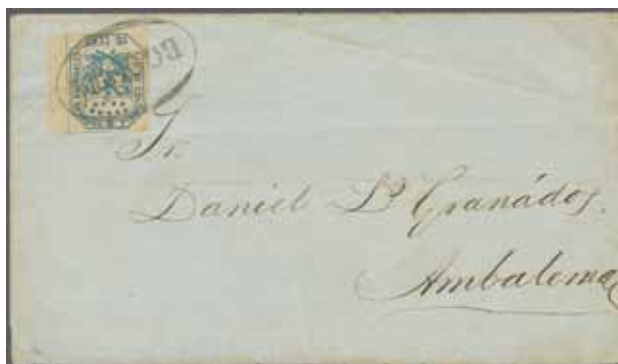 BO
Sr.
Daniel L. Granádos.
Ambalema